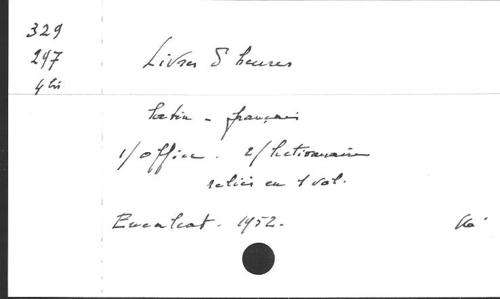 329
247
4 bis
Livres d'heures
Latin - français
1/ Office. 2/ lectionnaire
reliés en 1 vol.
Encalcat. 1952.